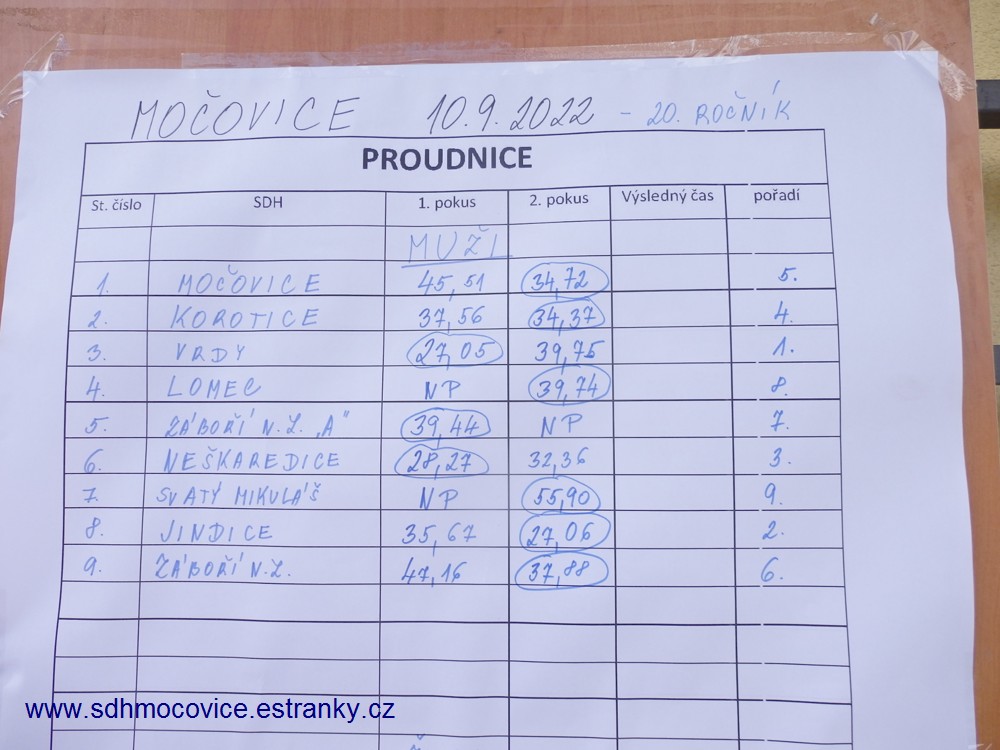 MOČOVICE 10.9.2022 - 20. ROČNÍK
PROUDNICE
St. číslo SDH 1. pokus 2. pokus Výsledný čas pořadí
MUŽI
1. MOČOVICE 45,51 34,72 5.
2. KOROTICE 37,56 34,37 4.
3. VRDY 27,05 39,75 1.
4. LOMEC NP 39,74 8.
5. ZÁBOŘÍ N.L. „A" 39,44 NP 7.
6. NEŠKAREDICE 28,27 32,36 3.
7. SVATÝ MIKULÁŠ NP 55,90 9.
8. JINDICE 35,67 27,06 2.
9. ZÁBOŘÍ N.L. 47,16 37,88 6.
www.sdhmocovice.estranky.cz